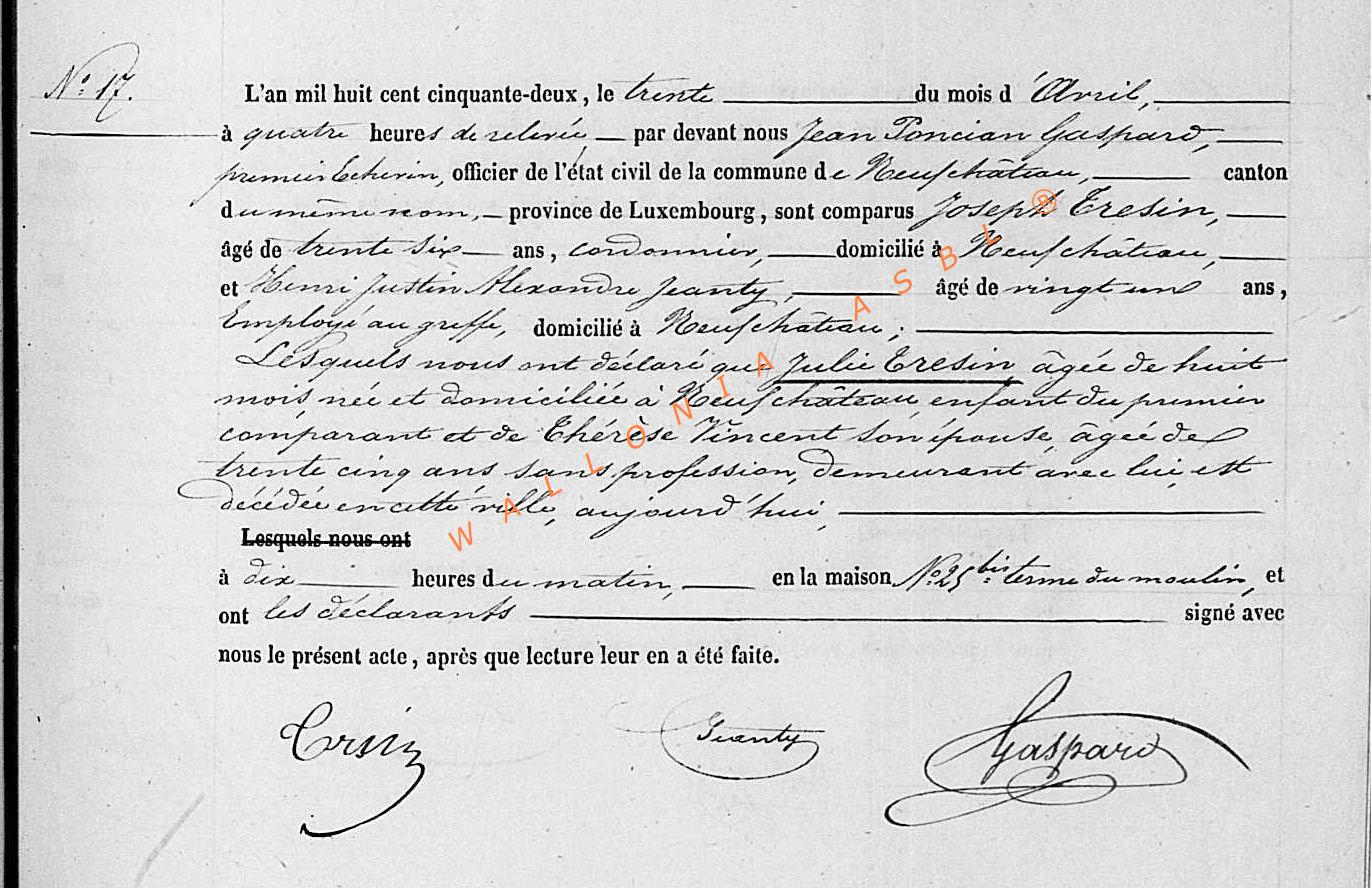 N.° 17.
L'an mil huit cent cinquante-deux, le trente du mois d'Avril,
à quatre heures de relevée, par devant nous Jean Poncian Gaspard,
premier Echevin, officier de l'état civil de la commune de Neufchâteau, canton
du même nom, province de Luxembourg, sont comparus Joseph Tresin,
âgé de trente six ans, cordonnier, domicilié à Neufchâteau,
et Henri Justin Alexandre Jeanty, âgé de vingt un ans,
Employé au greffe, domicilié à Neufchâteau;
Lesquels nous ont déclaré que Julie Tresin âgée de huit
mois, née et domiciliée à Neufchâteau, enfant du premier
comparant et de Thérèse Vincent son épouse, âgée de
trente cinq ans, sans profession, demeurant avec lui, est
décédée en cette ville, aujourd'hui,
Lesquels nous ont
à dix heures du matin, en la maison N.° 25 bis terme du moulin, et
ont les déclarants signé avec
nous le présent acte, après que lecture leur en a été faite.
Tresin Jeanty Gaspard
WALLONIA ASBL ®